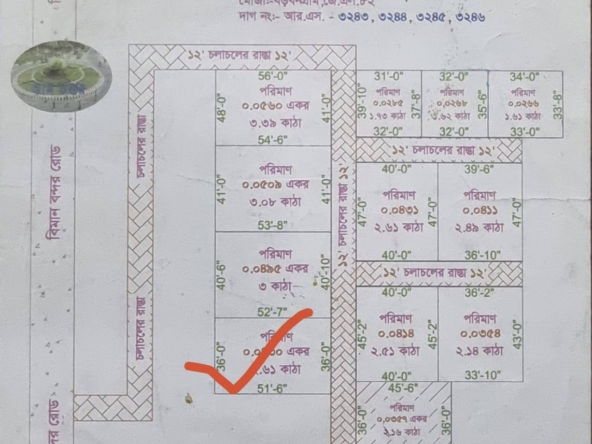 দাগ নং:- আর.এস. - ৩২৪৩, ৩২৪৪, ৩২৪৫, ৩২৪৬
১২' চলাচলের রাস্তা ১২'
56'-0"
পরিমাণ
০.০৫৬০ একর
৩.৩৯ কাঠা
48'-0"
41'-0"
54'-6"
পরিমাণ
০.০৫০৯ একর
৩.০৮ কাঠা
41'-0"
41'-0"
53'-8"
পরিমাণ
০.০৪৯৫ একর
৩ কাঠা
40'-6"
40'-10"
52'-7"
পরিমাণ
একর
.৬১ কাঠা
36'-0"
36'-0"
51'-6"
চলাচলের রাস্তা
চলাচলের রাস্তা
বিমান বন্দর রোড
রোড
১২' চলাচলের রাস্তা ১২'
31'-0"
পরিমাণ
০.০২৮৫
১.৭৩ কাঠা
39'-10"
37'-8"
32'-0"
32'-0"
পরিমাণ
০.০২৬৮
১.৬২ কাঠা
35'-6"
32'-0"
34'-0"
পরিমাণ
০.০২৬৬
১.৬১ কাঠা
33'-8"
33'-0"
১২' চলাচলের রাস্তা ১২'
40'-0"
পরিমাণ
০.০৪৩১
২.৬১ কাঠা
47'-0"
47'-0"
40'-0"
39'-6"
পরিমাণ
০.০৪১১
২.৪৯ কাঠা
47'-0"
36'-10"
১২' চলাচলের রাস্তা ১২'
40'-0"
পরিমাণ
০.০৪১৪
২.৫১ কাঠা
45'-2"
45'-2"
40'-0"
36'-2"
পরিমাণ
০.০৩৫৪
২.১৪ কাঠা
43'-0"
33'-10"
45'-6"
পরিমাণ
০.০৩৫৭ একর
২.১৬ কাঠা
36'-0"
36'-0"